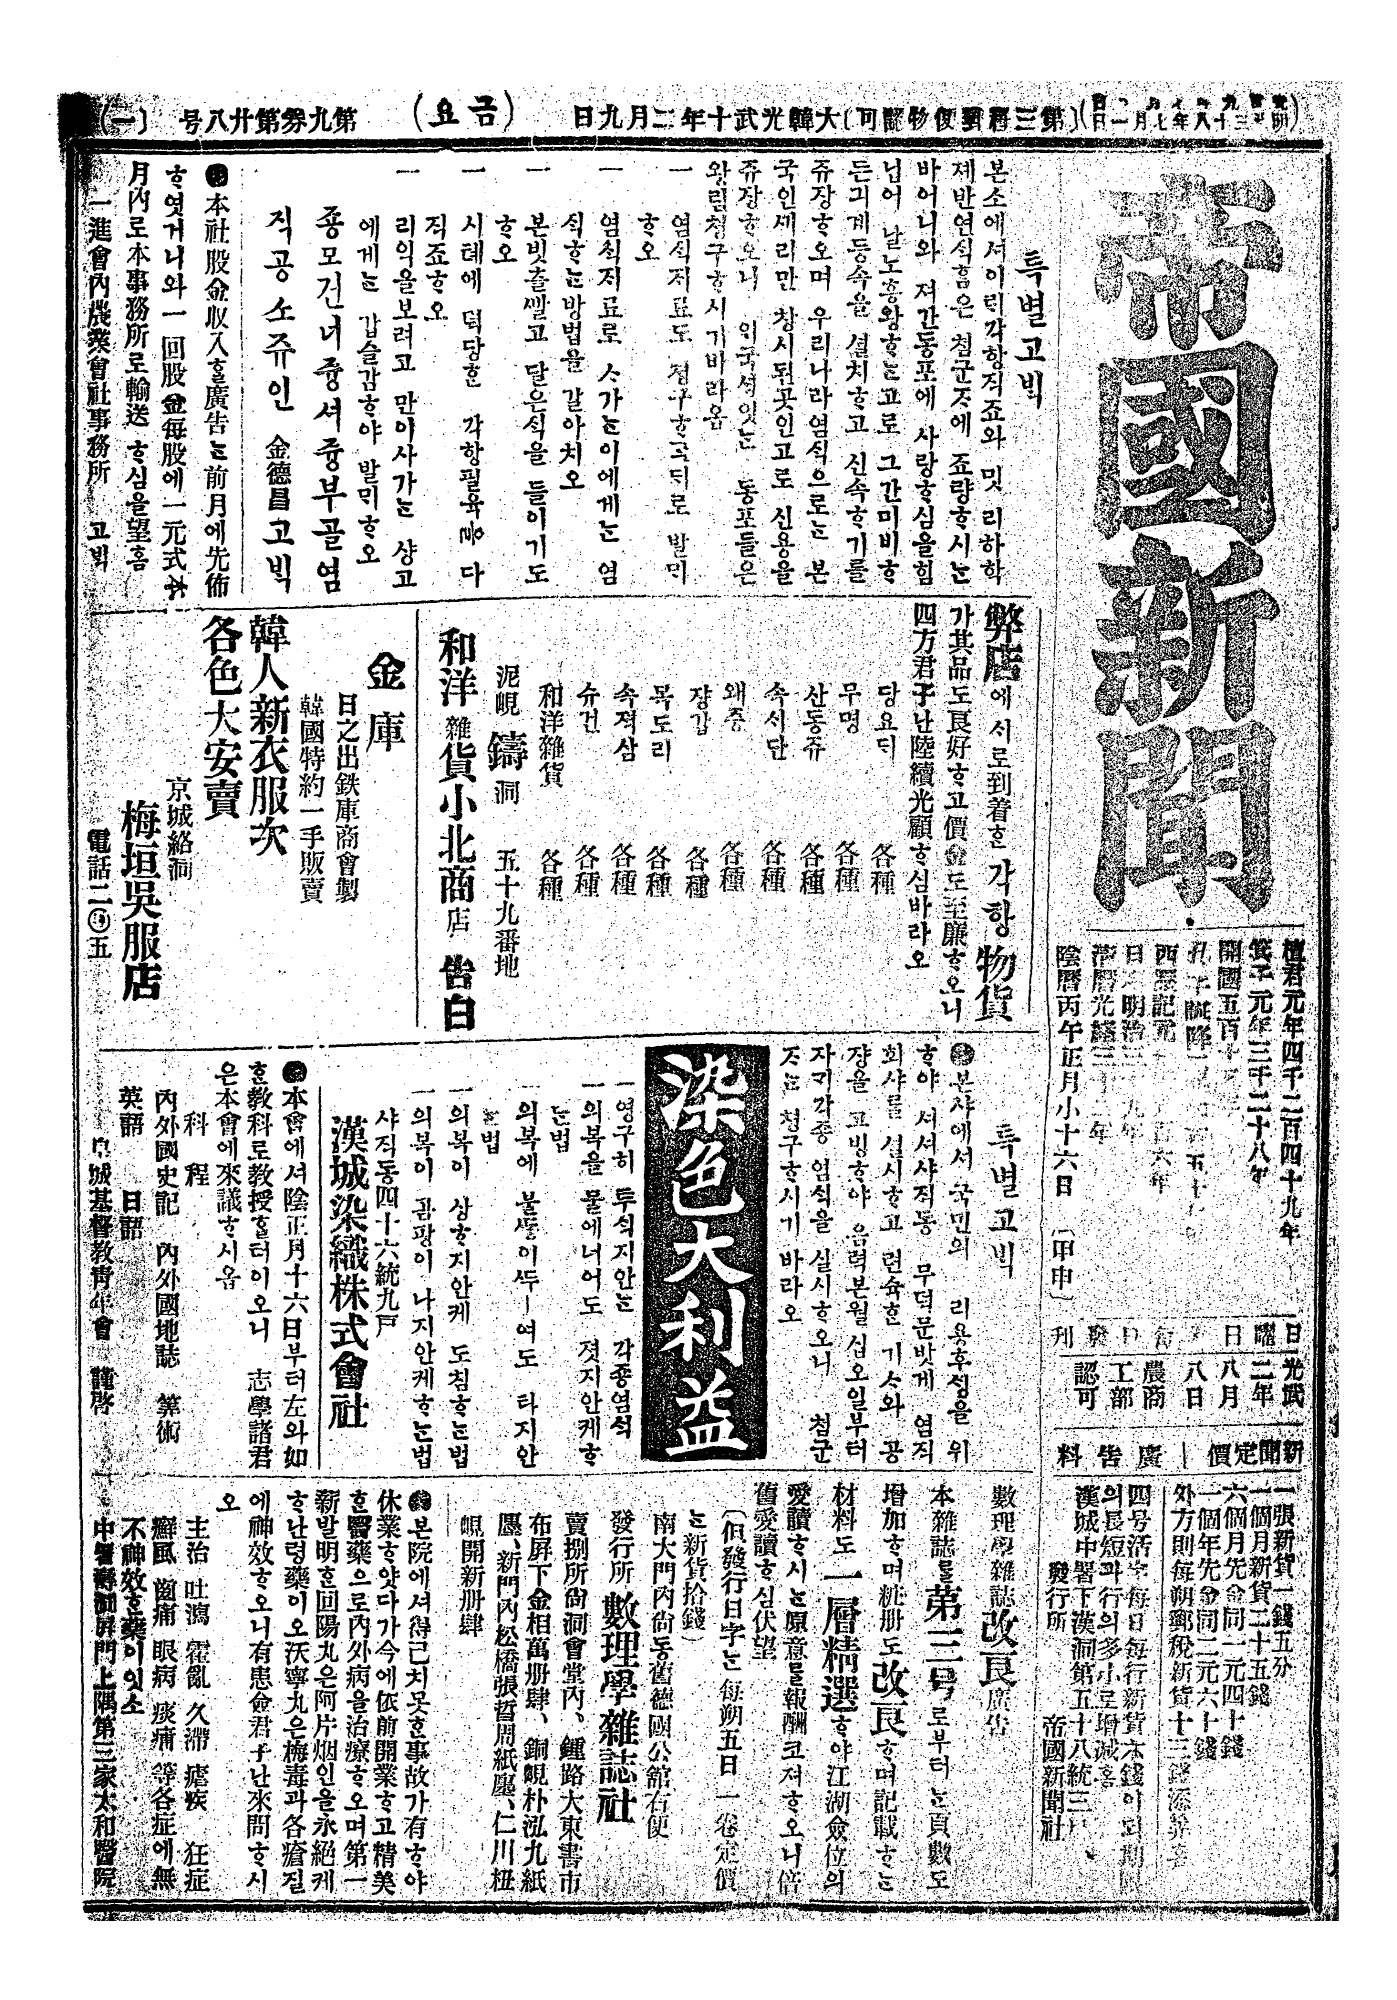 大韓光武十年二月九日
(금요)
第九券第廿八号
(一)
帝國新聞
檀君元年四千二百四十九年
箕子元年三千二十八年
開國五百十
陰曆丙午正月小十六日 (甲申)
新聞定價
廣告料
一張新貨一錢五分
一個月新貨二十五錢
六個月先金同一元四十錢
一個年先金同二元六十錢
漢城中署下漢洞第五十八統三戶
發行所 帝國新聞社
특별고빅
든긔계등속을 셜치ᄒᆞ고 신속ᄒᆞ기를
쥬장ᄒᆞ오며 우리나라염식으로ᄂᆞᆫ 본
국인새리만 창시된곳인고로 신용을
쥬장ᄒᆞ오니 외국셔잇ᄂᆞᆫ 동포들은
왕림쳥구ᄒᆞ시기바라옴
ᄒᆞ오
一 염식지료로 ᄉᆞ가ᄂᆞᆫ이에게ᄂᆞᆫ 염
식ᄒᆞᄂᆞᆫ방법을 갈아치오
一 본빗츨ᄲᅢᆯ고 달은식을 들이기도
ᄒᆞ오
一 시톄에 덕당ᄒᆞᆫ 각항필육 다
직죠ᄒᆞ오
一 리익을보려고 만이사가ᄂᆞᆫ 샹고
에게ᄂᆞᆫ 갑슬감ᄒᆞ야 발ᄆᆡᄒᆞ오
죵모건너즁셔즁부골염
직공소쥬인 金德昌고빅
本社股金収入ᄒᆞᆯ廣告ᄂᆞᆫ前月에先佈
ᄒᆞ엿거니와一回股金每股에一元式
月內로本事務所로輸送ᄒᆞ심을望홈
一進會內農業會社事務所 고빅
弊店에셔로到着ᄒᆞᆫ각항物貨
가其品도良好ᄒᆞ고價金도至廉ᄒᆞ오니
四方君子난陸續光顧ᄒᆞ심바라오
당요ᄃᆡ 各種
무명 各種
산동쥬 各種
속셔단 各種
왜증 各種
쟝갑 各種
목도리 各種
속젹삼 各種
슈건 各種
和洋雜貨 各種
泥峴 鑄洞 五十九番地
和洋雜貨小北商店 告白
金庫
日之出鉄庫商會製
韓國特約一手販賣
韓人新衣服次
各色大安賣
京城絡洞
梅垣吳服店
電話二〇五
특별고빅
본샤에셔 국민의 리용후싱을 위
ᄒᆞ야 셔셔샤직동 무덕문밧게 염직
회샤를 셜시ᄒᆞ고 련슉ᄒᆞᆫ 기ᄉᆞ와 공
쟝을 고빙ᄒᆞ야 음력본월 십오일부터
자긔각종 염식을 실시ᄒᆞ오니 쳠군
ᄌᆞᄂᆞᆫ 쳥구ᄒᆞ시기 바라오
染色大利益
一영구히 투식지안ᄂᆞᆫ 각종염식
一의복을 물에너어도 졋지안케ᄒᆞ
ᄂᆞᆫ법
一의복이 상ᄒᆞ지안케 도침ᄒᆞᄂᆞᆫ법
一의복이 곰팡이 나지안케ᄒᆞᄂᆞᆫ법
샤직동四十六統九戶
漢城染織株式會社
本會에셔陰正月十六日부터左와如
ᄒᆞᆫ教科로教授ᄒᆞᆯ터이오니 志學諸君
은本會에來議ᄒᆞ시옴
科程
內外國史記 內外國地誌 筭術
英語 日語
京城基督教靑年會 謹啓
數理學雜誌改良廣告
本雜誌를第三号로부터ᄂᆞᆫ頁數도
增加ᄒᆞ며粧册도改良ᄒᆞ며記載ᄒᆞᄂᆞᆫ
材料도一層精選ᄒᆞ야江湖僉位의
愛讀ᄒᆞ시ᄂᆞᆫ原意를報酬코져ᄒᆞ오니倍
舊愛讀ᄒᆞ심伏望
(但發行日字ᄂᆞᆫ每朔五日 一卷定價
ᄂᆞᆫ新貨拾錢)
南大門內尙동舊德國公館右便
發行所 數理學雜誌社
賣捌所尙洞會堂內、鍾路大東書市
布屏下金相萬册肆、銅峴朴泓九紙
廛、新門內松橋張晢周紙廛、仁川杻
峴開新册肆
본院에셔得已치못ᄒᆞᆫ事故가有ᄒᆞ야
休業ᄒᆞ얏다가今에依前開業ᄒᆞ고精美
ᄒᆞᆫ醫藥으로內外病을治療ᄒᆞ오며第一
新發明ᄒᆞᆫ回陽丸은阿片烟인을永絕케
ᄒᆞ난령藥이오沃寧丸은梅毒과各瘡질
에神效ᄒᆞ오니有患僉君子난來問ᄒᆞ시
오
主治 吐瀉 霍亂 久滯 瘧疾 狂症
癬風 齒痛 眼病 痰痛 等各症에無
不神效ᄒᆞᆫ藥이잇소
中署壽洞屏門上隅第三家太和醫院